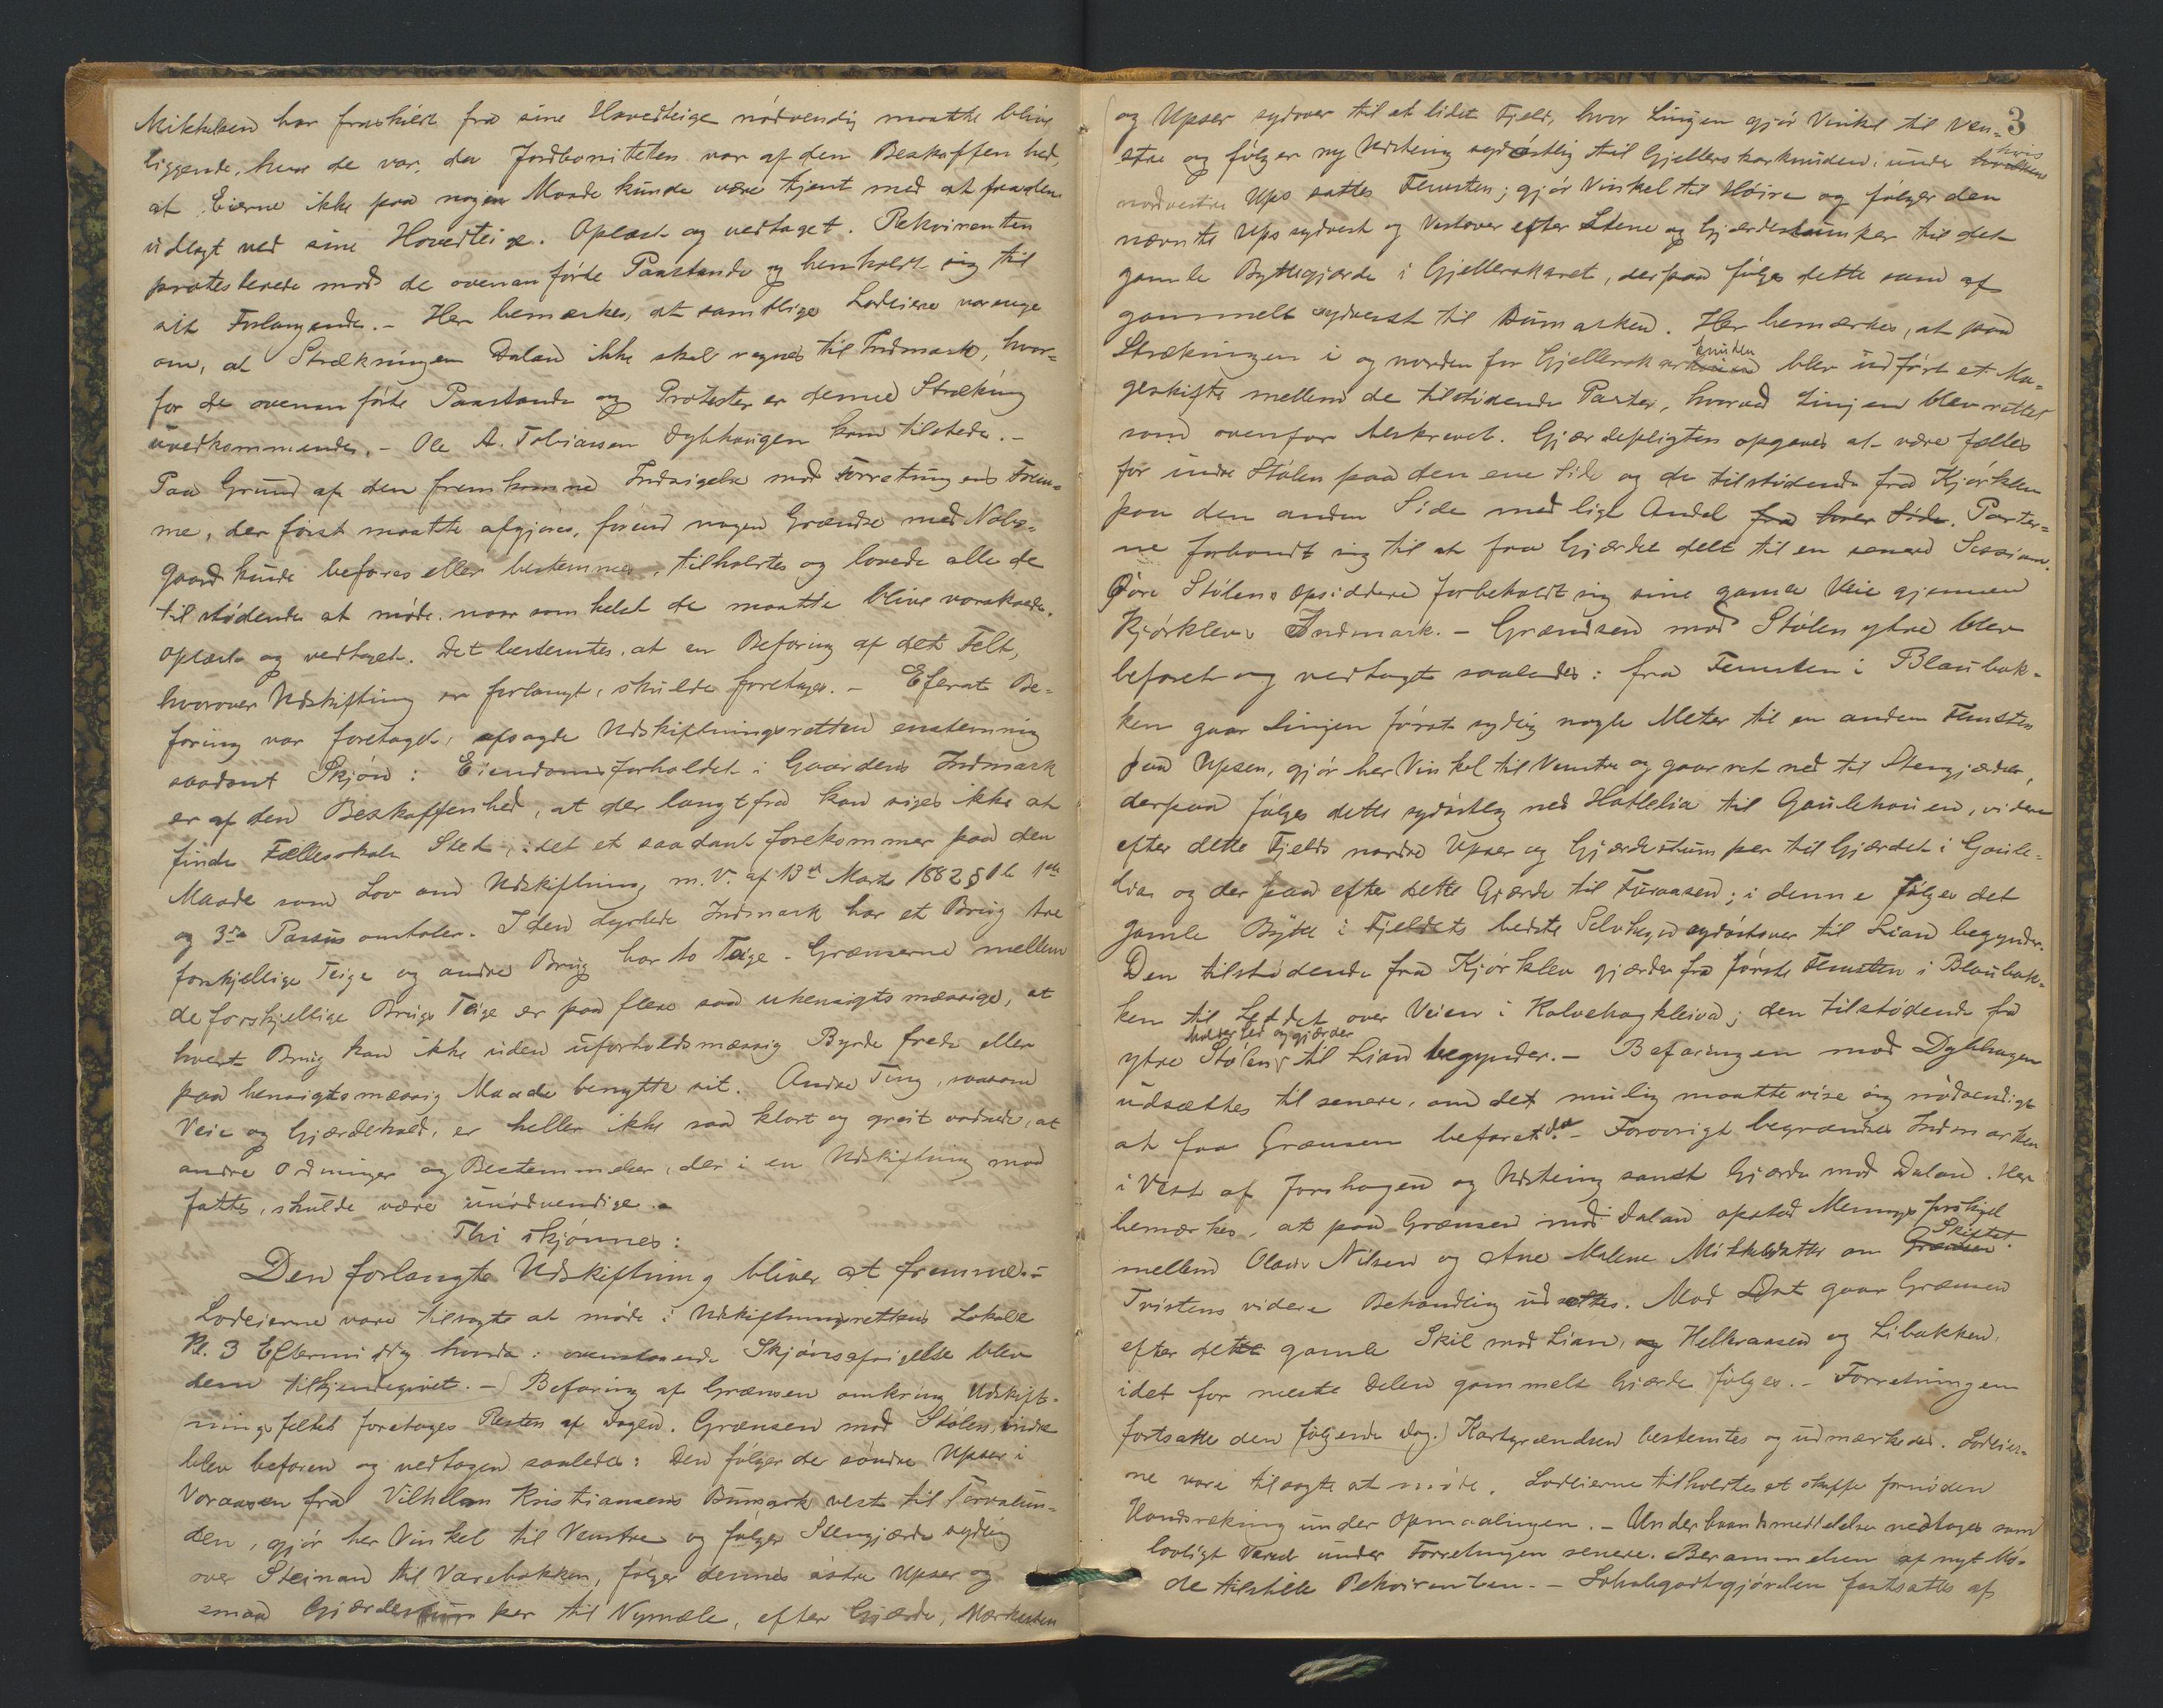 Mikkelsen har fraskilt fra sine Hovedteige nödvendig maatte blive
liggende, hvor de var, da Jordboniteten var af den Beskaffenhed,
at Eierne ikke paa nogen Maade kunde være tjent med at faa dem
udlagt ved sine Hovedteige. Oplæst og vedtaget. Rekvirenten
protesterede mod de ovenanförte Paastande og henholdt sig til
sit Forlangende. - Her bemærkes, at samtlige Lodeiere var enige
om, at Strækningen Daland ikke skal regnes til Indmark, hvor-
for de ovenanförte Paastande og Protester er denne Strækning
uvedkommende. - Ole A. Tobiassen Dybhaugen kom tilstede. -
Paa Grund af den fremkomne Indsigelse mod Forretningens Frem-
me, der först maatte afgjöres, förend nogen Grændse med Nabo-
gaard kunde befares eller bestemmes, tilholdtes og lovede alle de
tilstödende at möde, naar som helst de maatte blive varskoede.
Oplæst og vedtaget. Det bestemtes, at en Befaring af det Felt,
hvorover Udskiftning er forlangt, skulde foretages. - Efterat Be-
faring var foretaget, afsagde Udskiftningsretten enstemmig
saadant Skjön: Eiendomsforholdet i Gaardens Indmark
er af den Beskaffenhed, at der langtfra kan siges ikke at
finde Fællesskab Sted, idet et saadant forekommer paa den
Maade som Lov om Udskiftning m. V. af 13de Marts 1882 § 1 b 1ste
og 3die Passus omtaler. I den dyrkede Indmark har et Brug tre
forskjellige Teige og andre Brug har to Teige. Grænserne mellem
de forskjellige Brugs Teige er paa flere saa uhensigtsmæssige, at
hvert Brug kan ikke uden uforholdsmæssig Byrde frede eller
paa hensigtsmæssig Maade benytte sit. Andre Ting, saasom
Veie og Gjærdehold, er heller ikke saa klart og greit ordnede, at
andre Ordninger og Bestemmelser, der i en Udskiftning maa
fattes, skulde være unödvendige. -
Thi skjönnes:
Den forlangte Udskiftning bliver at fremme. -
Lodeierne vare tilsagte at möde i Udskiftningsrettens Lokale
Kl. 3 Eftermiddag hvorda ovenstaaende Skjönsafsigelse blev
dem tilkjendegivet. - Befaring af Grænsen omkring Udskift-
ningsfeltet foretoges Resten af Dagen. Grænsen mod Stölen indre
blev befaren og vedtagen saaledes: Den fölger de söndre Upser i
Voraasen fra Vilhelm Kristiansens Bumark vest til Torvalun-
den, gjör her Vinkel til Venstre og fölger Stengjærde sydlig
over Steinan til Varebakken, fölger dennes östre Upser og
smaa Gjærdestumper til Nymæle, efter Gjærde, Mærkesten
3
og Upser sydover til et lidet Fjeld, hvor Linjen gjör Vinkel til Ven-
stre og fölger ny Udsteing sydöstlig til Gjellerskarknuden, under hvis
nordvestre Ups sattes Femsten; gjör Vinkel til Höire og fölger den
nævnte Ups sydvest og Vestover efter Stene og Gjærdestumper til det
gamle Byttesgjærde i Gjellerskaret, derpaa fölges dette som af
gammelt sydvest til Bumarken. Her bemærkes, at paa
Strækningen i og norden for Gjellerskarknuden blev udfört et Ma-
geskifte mellem de tilstödende Parter, hvorved Linjen blev rettet
som ovenfor beskrevet. Gjærdepligten opgaves at være fælles
for indre Stölen paa den ene Side og de tilstödende fra Kjörklev
paa den anden Side med ligt Andel fra hver Side. Parter-
ne forbandt sig til at faa Gjærdet delt til en senere Session.
Övre Stölens Opsiddere forbeholdt sig sine gamle Veie gjennem
Kjörklevs Indmark. - Grændsen mod Stölen ytre blev
befaret og vedtaget saaledes: fra Femsten i Blaubak-
ken gaar Linjen först sydlig nogle Meter til en anden Femsten
paa Upsen, gjör her Vinkel til Venstre og gaar ret ned til Stengjærdet,
derpaa fölges dette sydöstlig ned Hatlelia til Gaulehauen, videre
efter dette Fjelds nordre Upser og Gjærdestumper til Gjærdet i Gaule-
lia og derpaa efter dette Gjærde til Furaasen; i denne fölges det
gamle Bytte i Fjeldets bedste Selvhegn sydöstover til Lian begynder.
Den tilstödende fra Kjörklev gjærder fra förste Femsten i Blaubak-
ken til Leddet over Veien i Kalvehagkleiva; den tilstödende fra
holder Led og gjærder
ytre Stölen til Lian begynder. - Befaringen mod Dybhagen
udsættes til senere, om det mulig maatte vise sig nödvendigt
at faa Grænsen befaret da. - Forovrigt begrændses Indmarken
i Vest af Forshagen og Udsteing samt Gjærde mod Daland. Her
bemærkes, at paa Grænsen mod Daland opstod Menings forskjel
mellem Olaus Nilsen og Ane Malene Mikkelsdatter om Skiftet.
Tvistens videre Behandling udsattes. Mod Öst gaar Grænsen
efter dette gamle Skil mod Lian, og Helkraasen og Libakken,
idet for meste Delen gammelt Gjærde fölges. - Forretningen
fortsatte den fölgende Dag. Kartgrændsen bestemtes og udmærkedes. Lodeier-
ne vare tilsagte at möde. Lodeierne tilholdtes at skaffe fornöden
Haandrækning under Opmaalingen. - Underhaandsmeddelelse vedtoges som
lovligt Varsel under Forretningen senere. Berammelsen af nyt Mö-
de tilstile Rekvirenten. - Lokalegodtgjörelsen fastsattes af